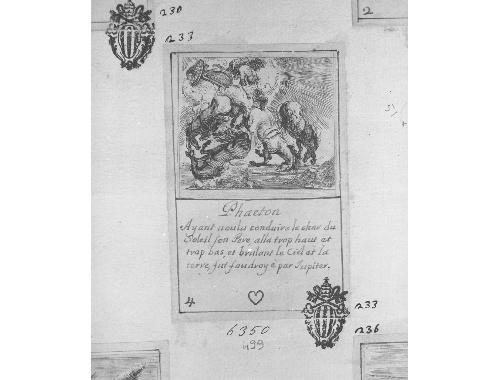 230
233
2
Phaeton
Ayant uoulu conduire le char du
Soleil son Pere, alla trop haut et
trop bas, et brulant le Ciel et la
terre, fut foudroyé par Jupiter.
4
233
236
6350
499